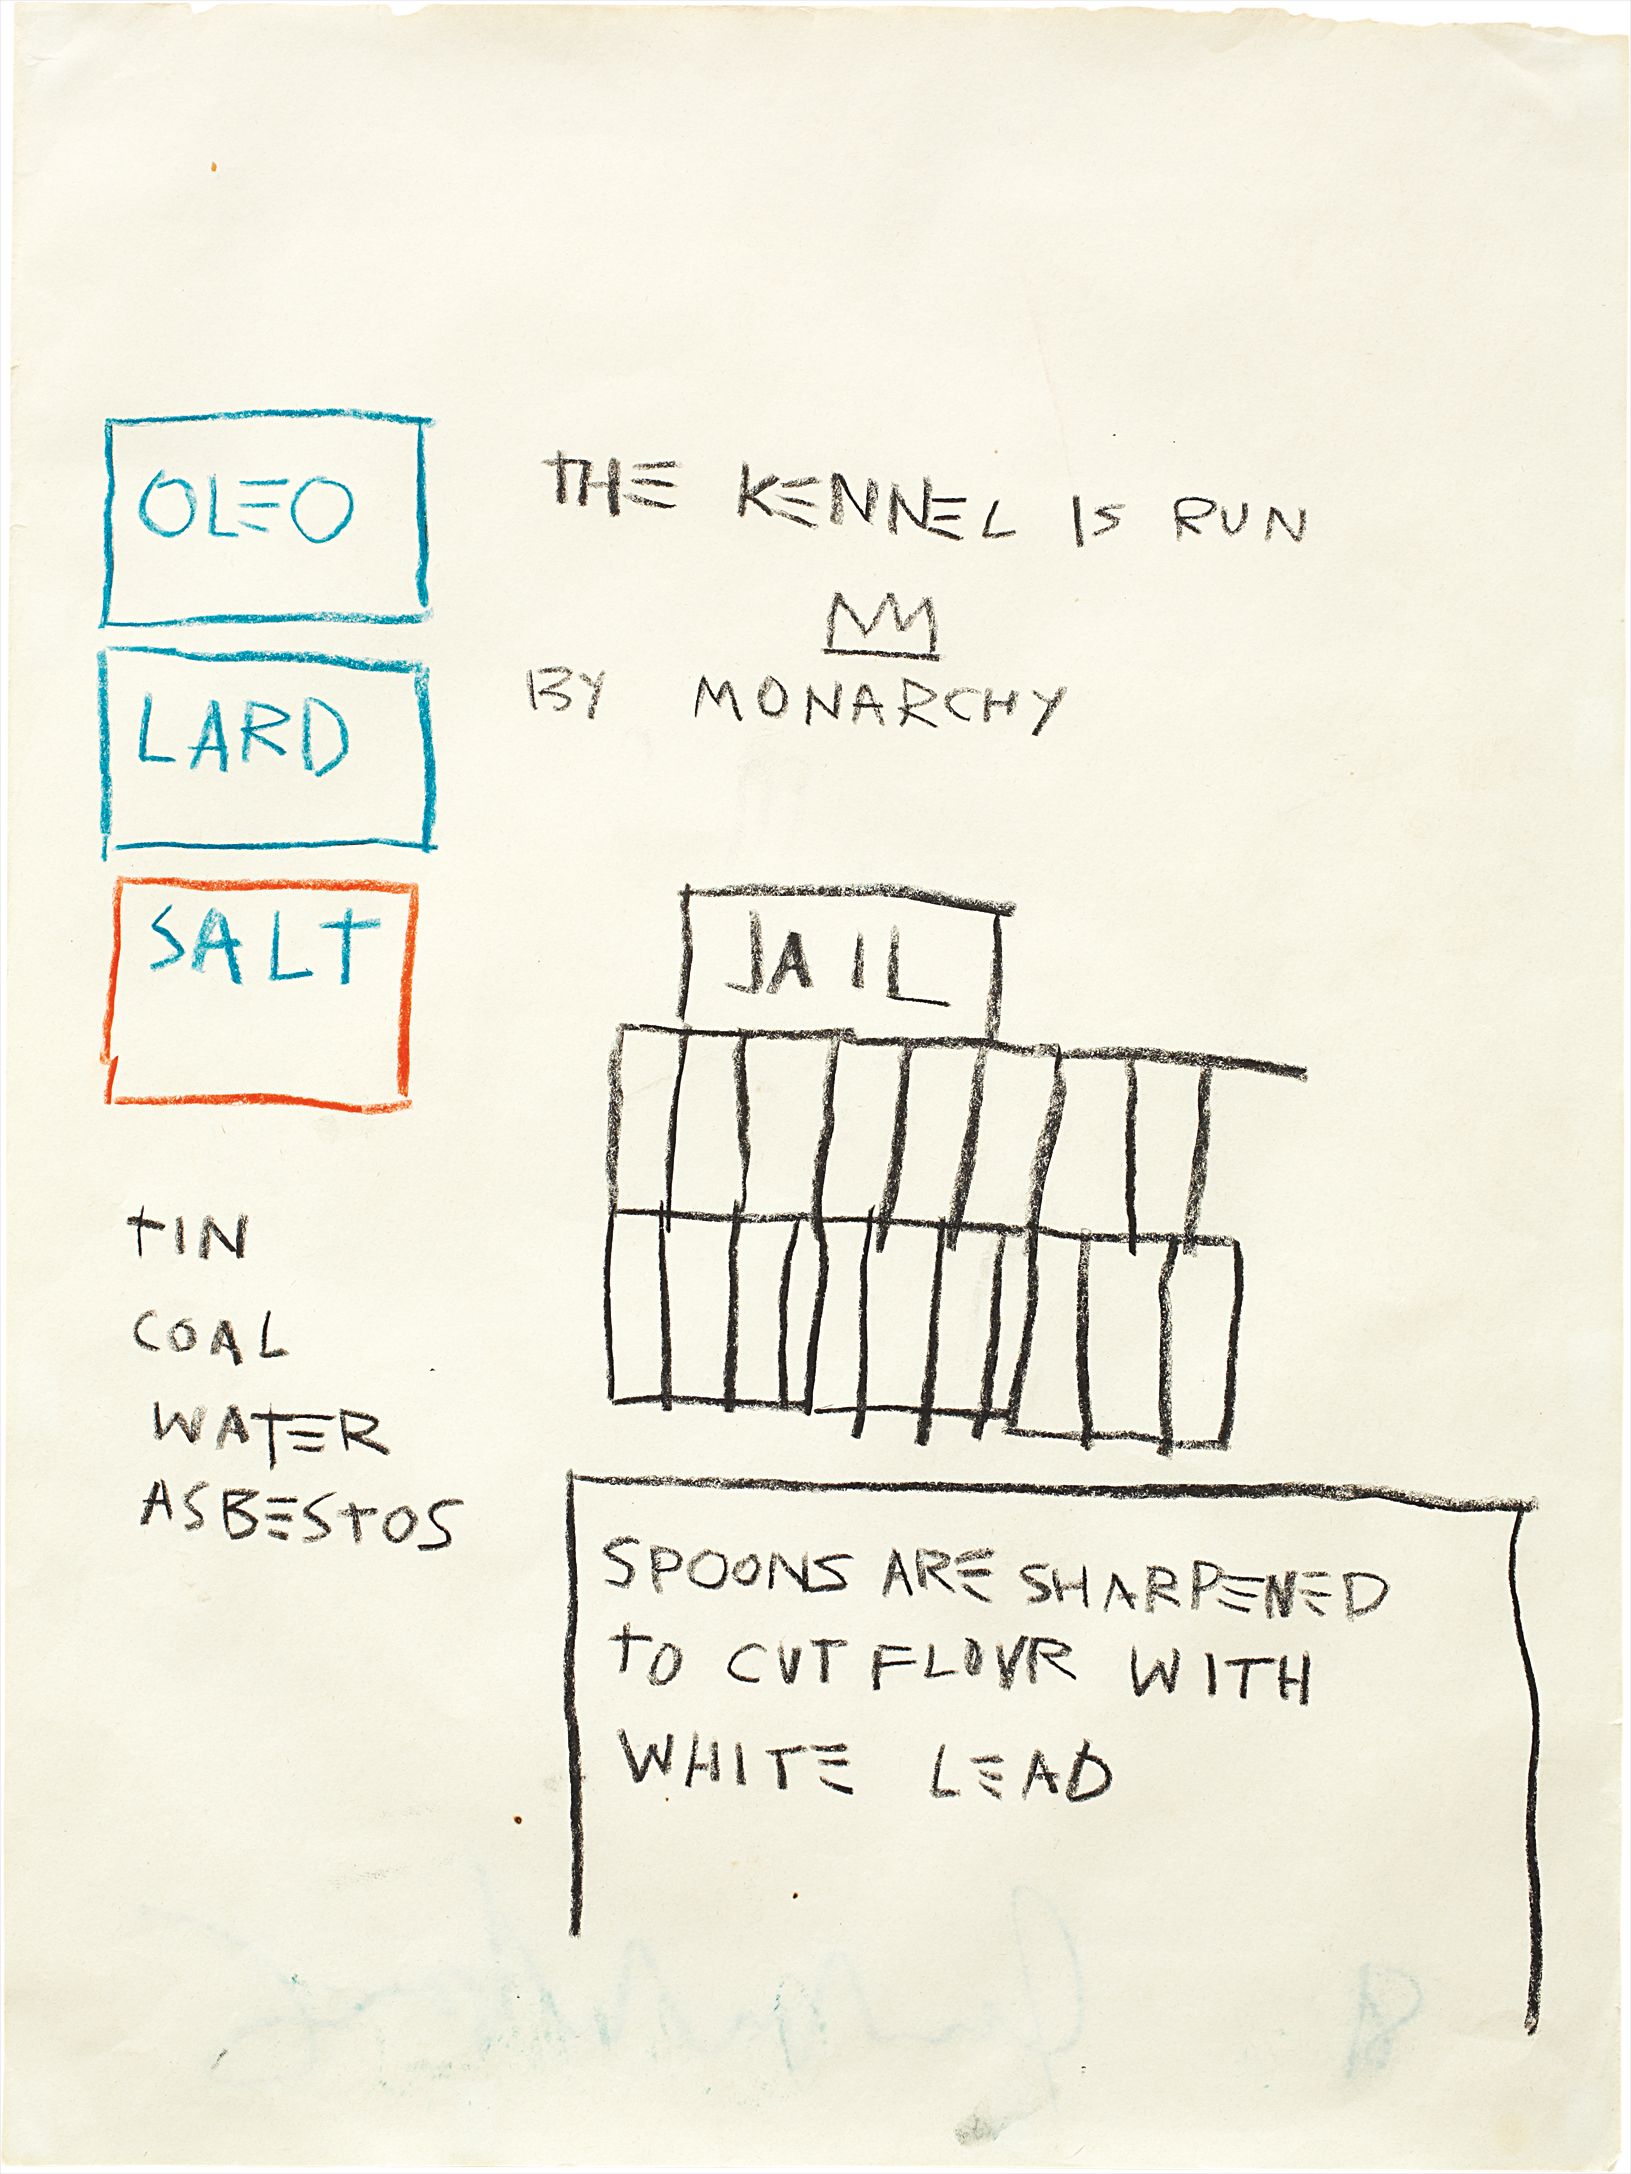 OLEO
LARD
SALT
TIN
COAL
WATER
ASBESTOS
THE KENNEL IS RUN
BY MONARCHY
JAIL
SPOONS ARE SHARPENED
TO CUT FLOUR WITH
WHITE LEAD